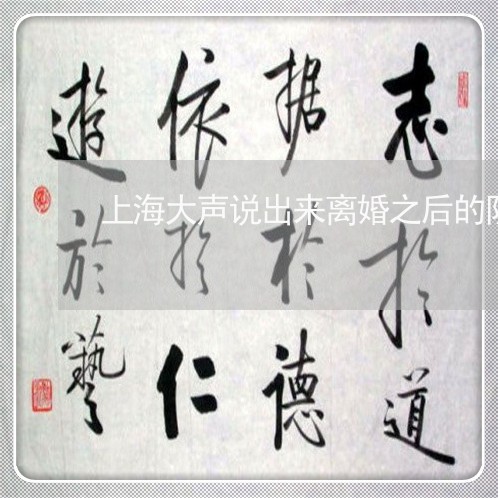 志扵道
据扵德
依扵仁
遊於藝
上海大声说出来离婚之后的